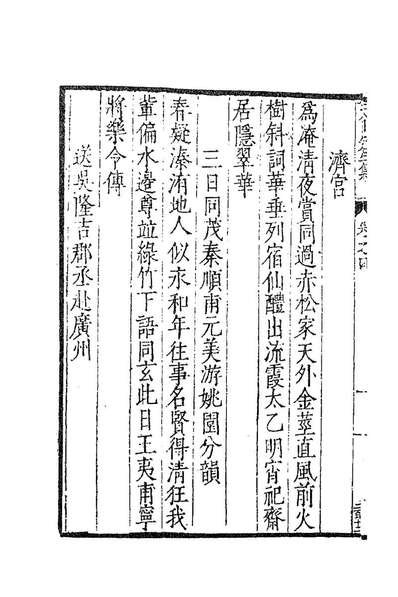 卷之四
濟宫
爲淹清夜賞同過赤松家天外金莖直風前火
樹斜詞華垂列宿仙醴出流霞太乙明宵祀齋
居隱翠華
三日同茂秦順甫元美游姚園分韻
春疑溱洧地人似永和年往事名賢得清狂我
輩偏水邊尊竝綠竹下語同玄此日王夷甫寧
將樂令傳
送吳隆吉郡丞赴廣州